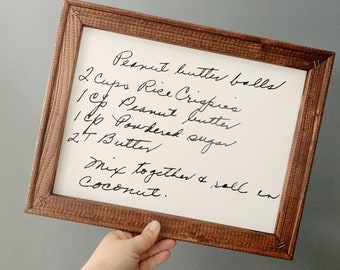 Peanut butter balls
2 cups Rice Crispies
1 cp Peanut butter
1 cp Powdered sugar
2 T Butter
Mix together & roll in
coconut.